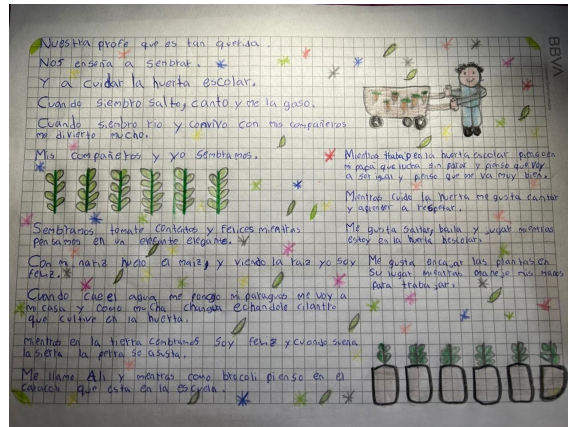 Nuestra profe que es tan querida.
Nos enseña a senbrar.
Y a cuidar la huerta escolar.
Cuando siembro salto, canto y me la goso.
Cuando siembro rio y convivo con mis compañeros
me divierto mucho.
Mis compañeros y yo sembramos.
Sembramos tomate contentos y felices mientras
pensamos en un elefante elegante.
Con mi nariz huelo el maiz, y viendo la raiz yo soy
feliz.
Cuando cae el agua me pongo mi paraguas me voy a
mi casa y como mucha changua echandole cilantro
que cultive en la huerta.
mientras en la tierra sembramos soy feliz y cuando suena
la sierra la perra se asusta.
Me llamo Ali y mientras como brocoli pienso en el
caracoli que esta en la escuela.
Mientras trabajo en la huerta escolar pienso en
mi papá que lucha sin parar y pienso que voy
a ser igual y pienso que me va muy bien.
Mientras cuido la huerta me gusta cantar
y aprender a respetar.
Me gusta saltar, baila y jugar mientras
estoy en la huerta hescolar.
Me gusta encajar las plantas en
su lugar mientras manejo mis manos
para trabajar.
BBVA